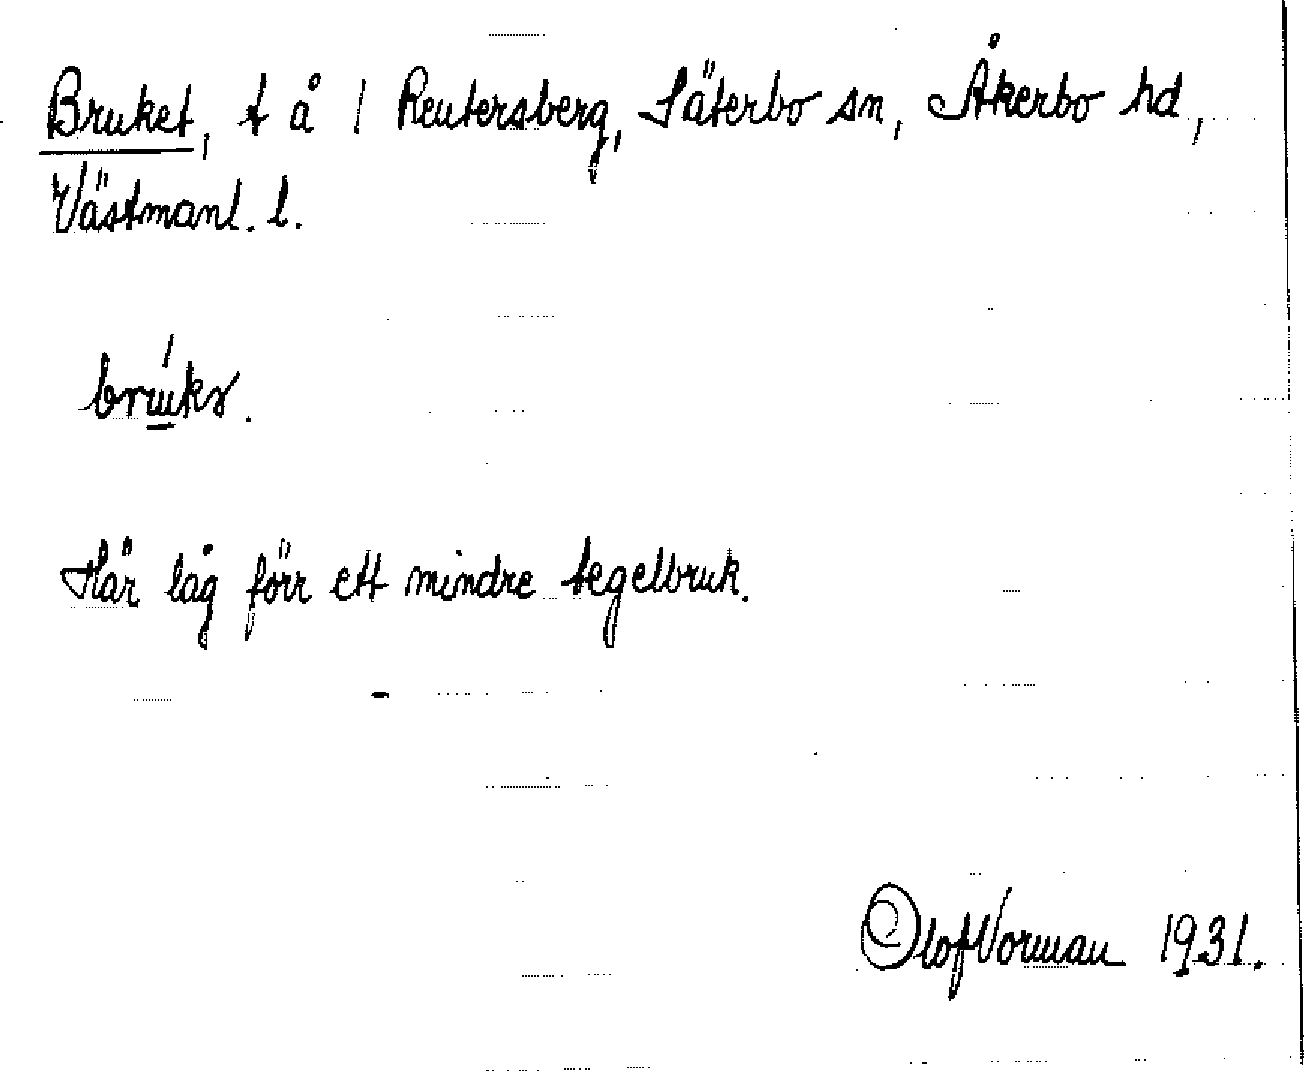 Bruket, t å / Reutersberg, Säterbo sn, Åkerbo hd,
Västmanl. l.
Här låg förr ett mindre tegelbruk.
Olof Vorman 1931.